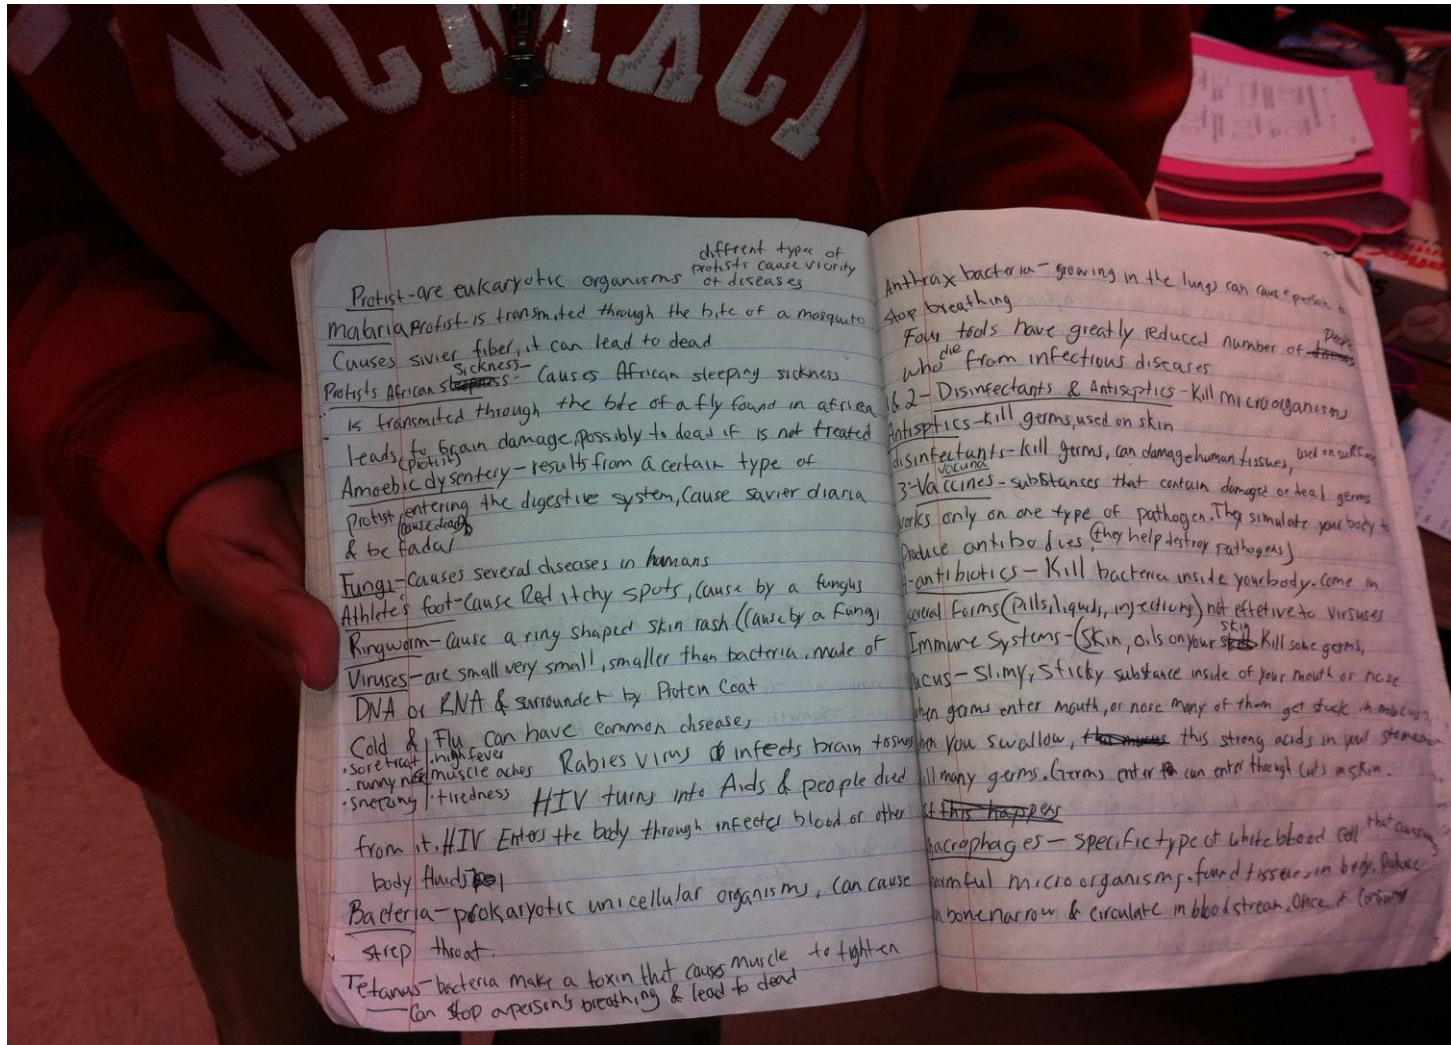 diffrent types of
protists cause viority
of diseases
Protist-are eukaryotic organisms
malaria Protist-is transmited through the bite of a mosquito
Causes sivier fiber, it can lead to dead
Sickness-
Protists African - Causes African sleeping sickness
is transmited through the bite of a fly found in africa
leads to brain damage, possibly to dead if is not treated
(protist)
Amoebic dysentery-results from a certain type of
Protist entering the digestive system, Cause savier diaria
(cause dead)
& be fadal
Fungi-Causes several diseases in humans
Athlete's foot-Cause Red itchy spots, Cause by a fungus
Ringworm-Cause a ring shaped skin rash (Cause by a Fungi
Viruses-are small very small, smaller than bacteria. made of
DNA or RNA & surrounder by Protein Coat
Cold & Flu can have common disease,
.sore troat .high fever
.runny nose muscle aches Rabies virus infects brain tissues
.sneezing .tiredness HIV turns into Aids & people died
from it. HIV Enters the body through infected blood or other
body fluids
Bacteria-prokaryotic unicellular organisms, can cause
strep throat.
Tetanus-bacteria make a toxin that causes muscle to tighten
can stop a person's breathing & lead to dead
Anthrax bacteria-growing in the lungs can cause person to
stop breathing
Four tools have greatly reduced number of
who die from infectious diseases
1&2-Disinfectants & Antiseptics-Kill microorganisms
Antisptics-kill germs, used on skin
disinfectants-kill germs, can damage human tissues, used on surfaces
vacuna
3-Vaccines-substances that contain damaged or dead germs
works only on one type of pathogen. They simulate your body to
Produce antibodies (they help destroy pathogens)
-antibiotics-Kill bacteria inside your body. Come in
several forms (pills, liquids, injections) not effetive to virsuses
skin
Immune Systems-(skin, oils on your Kill some germs,
-Slimy, Sticky substance inside of your mouth or nose
germs enter mouth, or nose many of them get stuck in
you swallow, this strong acids in your stomach
many germs. Germs enter can enter though cuts in skin.
this happens
macrophages-specific type of white blood cell that
harmful microorganisms. found tissues in body.
bone narrow & circulate in blood stream. Once it